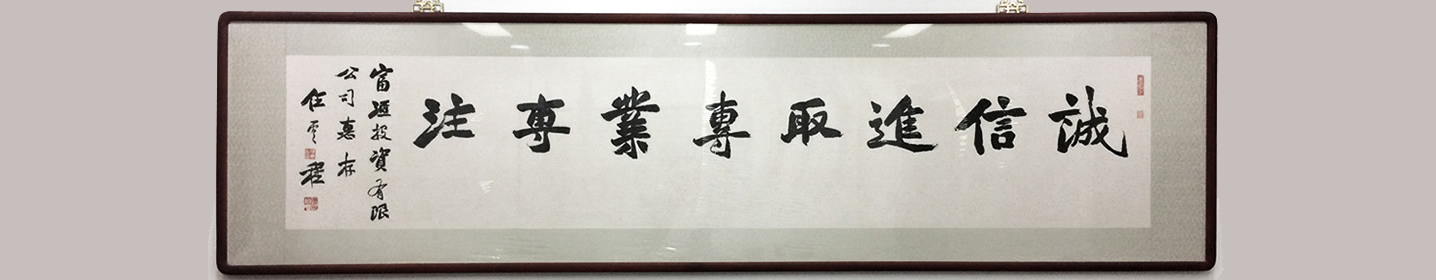 誠信進取專業專注
富滙投資有限
公司惠存
任雲程